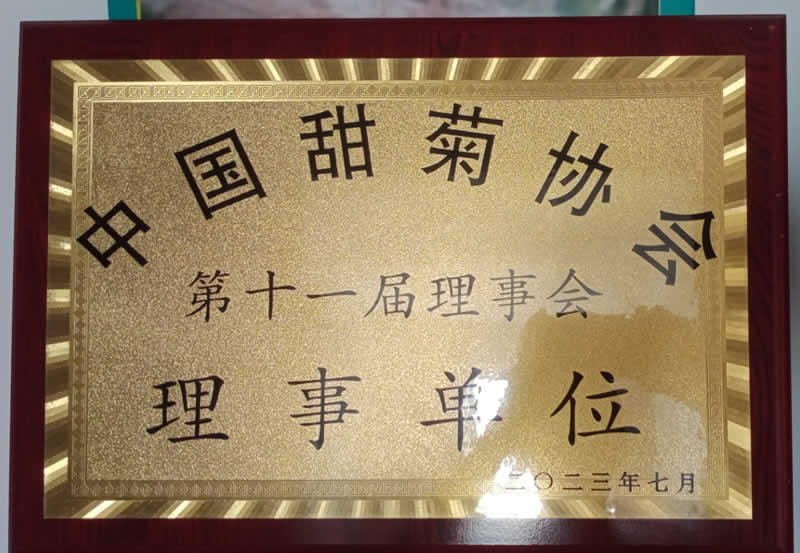 中国甜菊协会
第十一届理事会
理事单位
二〇二三年七月